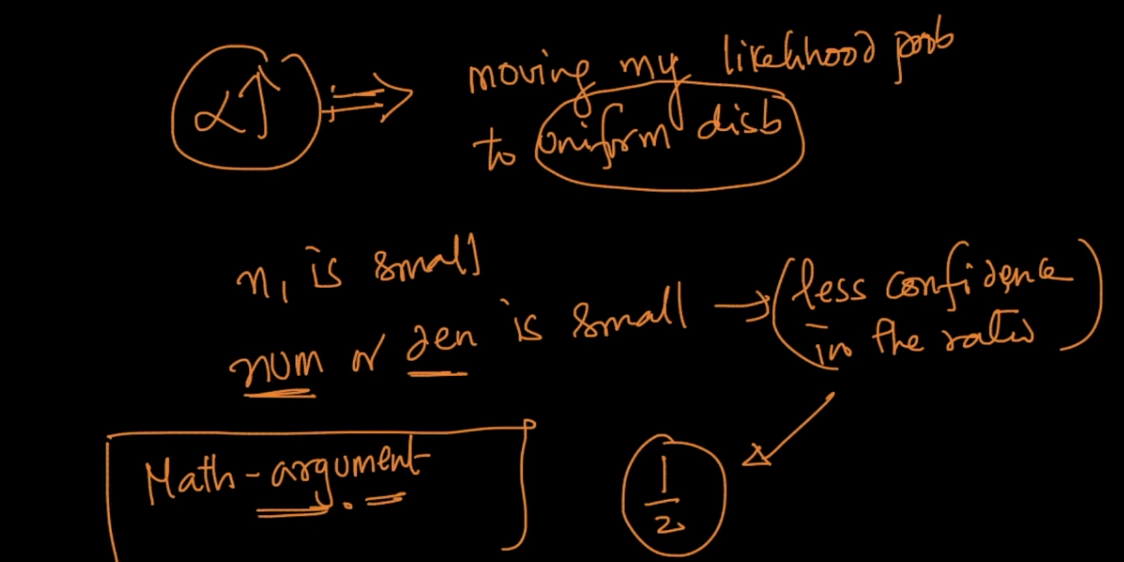 α↑ ⟹ moving my likelihood prob
to uniform disb
n₁ is small
num or den is small → (less confidence
in the ratio)
Math-argument
1/2